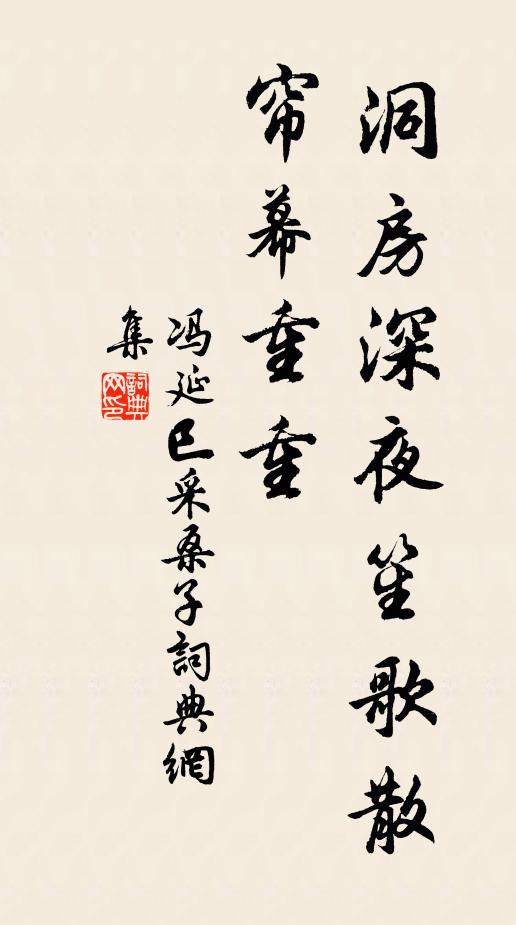 洞房深夜笙歌散
帘幕重重
冯延巳采桑子詞典網
集
詞典
网印